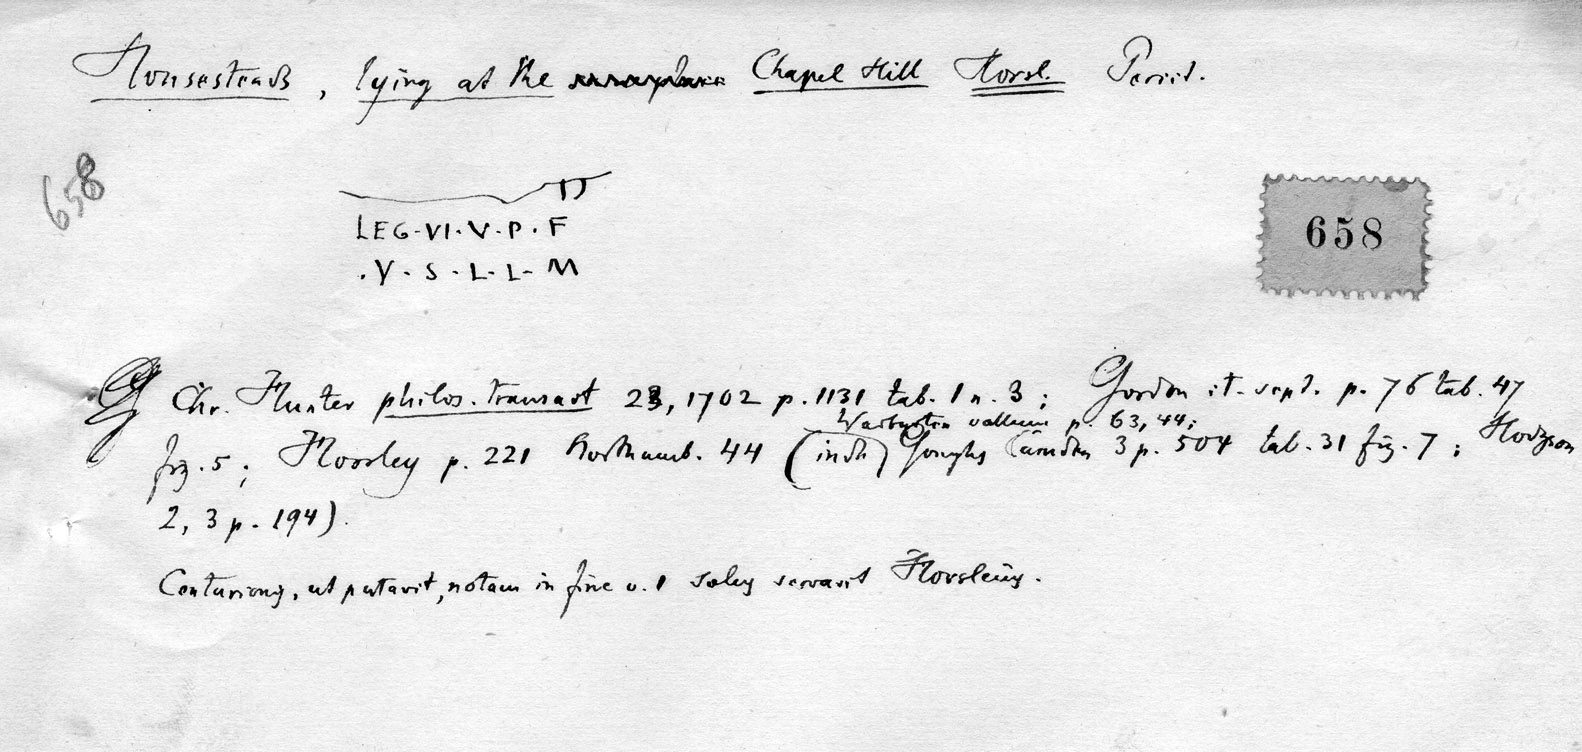 Housesteads, lying at the Chapel Hill Horsl. Periit.
658
658
LEG·VI·V·P·F
·V·S·L·L·M
Chr. Hunter philos. transact 23, 1702 p. 1131 tab. 1 n. 3; Gordon it. sept. p. 76 tab. 47
Warburton vallum p. 63, 44;
fig. 5; Horsley p. 221 Northumb. 44 (inde Goughs Camden 3 p. 504 tab. 31 fig. 7; Hodgson
2, 3 p. 194).
Centurionis, ut putavit, notam in fine v. 1 solus servavit Horsleius.